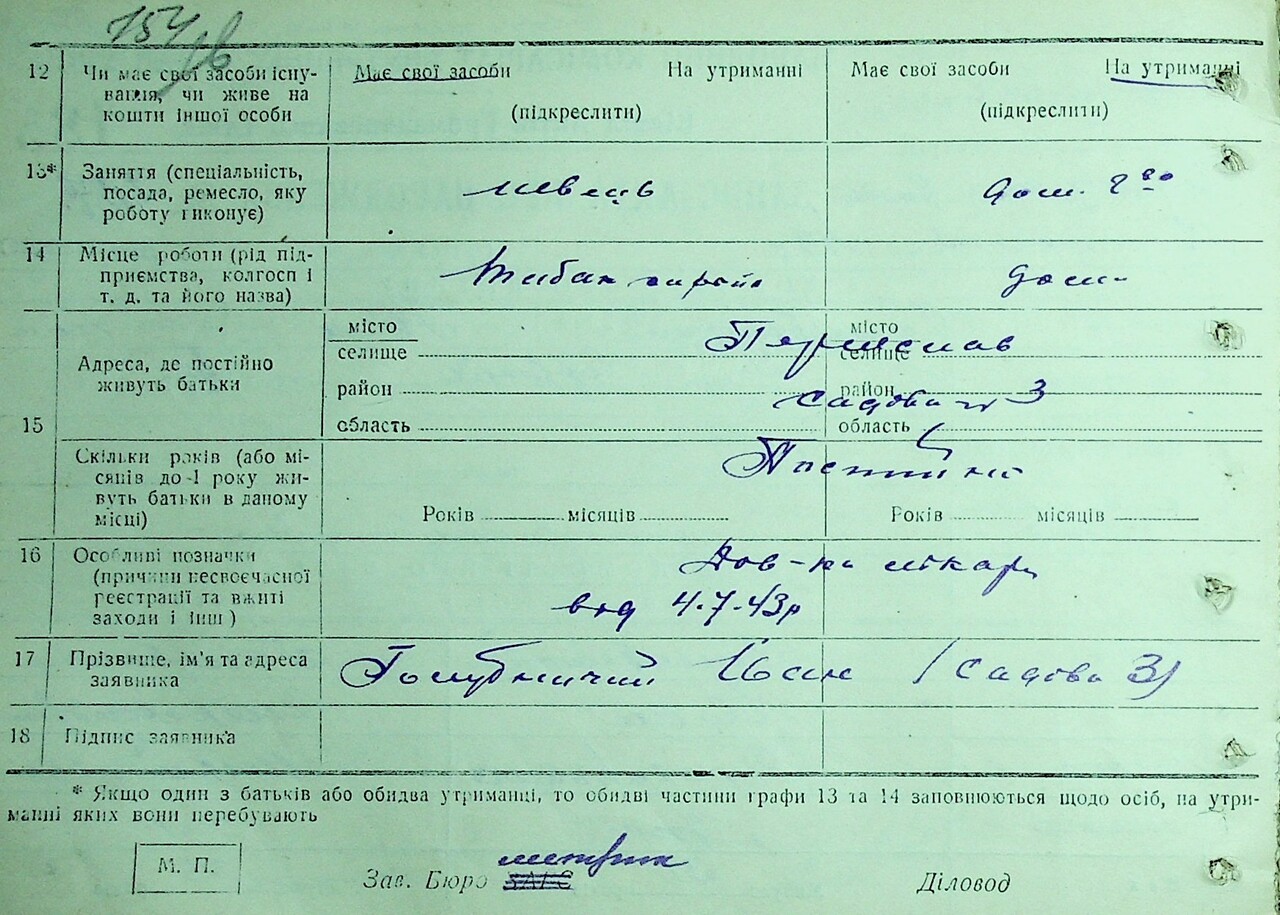 154
12 Чи має свої засоби існу- Має свої засоби На утриманні Має свої засоби На утриманні
вання, чи живе на
кошти іншої особи (підкреслити) (підкреслити)
13* Заняття (спеціальність,
посада, ремесло, яку швець дом.
роботу виконує)
14 Місце роботи (рід під-
приємства, колгосп і дом.
т. д. та його назва)
місто Переяслав місто
селище селище
Адреса, де постійно
живуть батьки
район Садова 3 район
15 область область
Скільки років (або мі-
сяців до 1 року жи- Постійно
вуть батьки в даному
місці) Років місяців Років місяців
16 Особливі позначки Дов-ка лікаря
(причини несвоєчасної
реєстрації та вжиті від 4.7.43р
заходи і інш)
17 Прізвище, ім'я та адреса Голубничий (Садова 3)
заявника
18 Підпис заявника
* Якщо один з батьків або обидва утриманці, то обидві частини графи 13 та 14 заповнюються щодо осіб, на утри-
манні яких вони перебувають
М. П. Зав. Бюро ЗАГС метрик Діловод